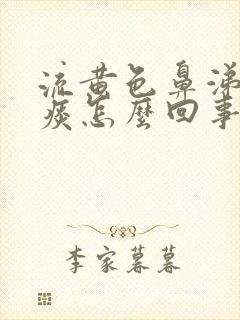 流黄色鼻涕
痰怎麽回事
李家暮暮